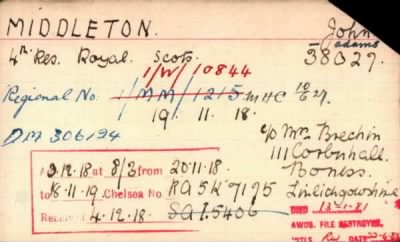 MIDDLETON. John
adams
4th Res. Royal Scots. 58027.
1/W/10844
Regional No. 1/MM/1215. MHC 10/6 27.
19. 11. 18.
DM 306194
c/o Mrs Brechin
111 Corbiehall.
Boness.
Linlithgowshire
at 8/3 from 20.11.18.
to 18.11.19. Chelsea No
4.12.18. SGI.5406
DIED
AWDS. FILE DESTROYED.
DATE